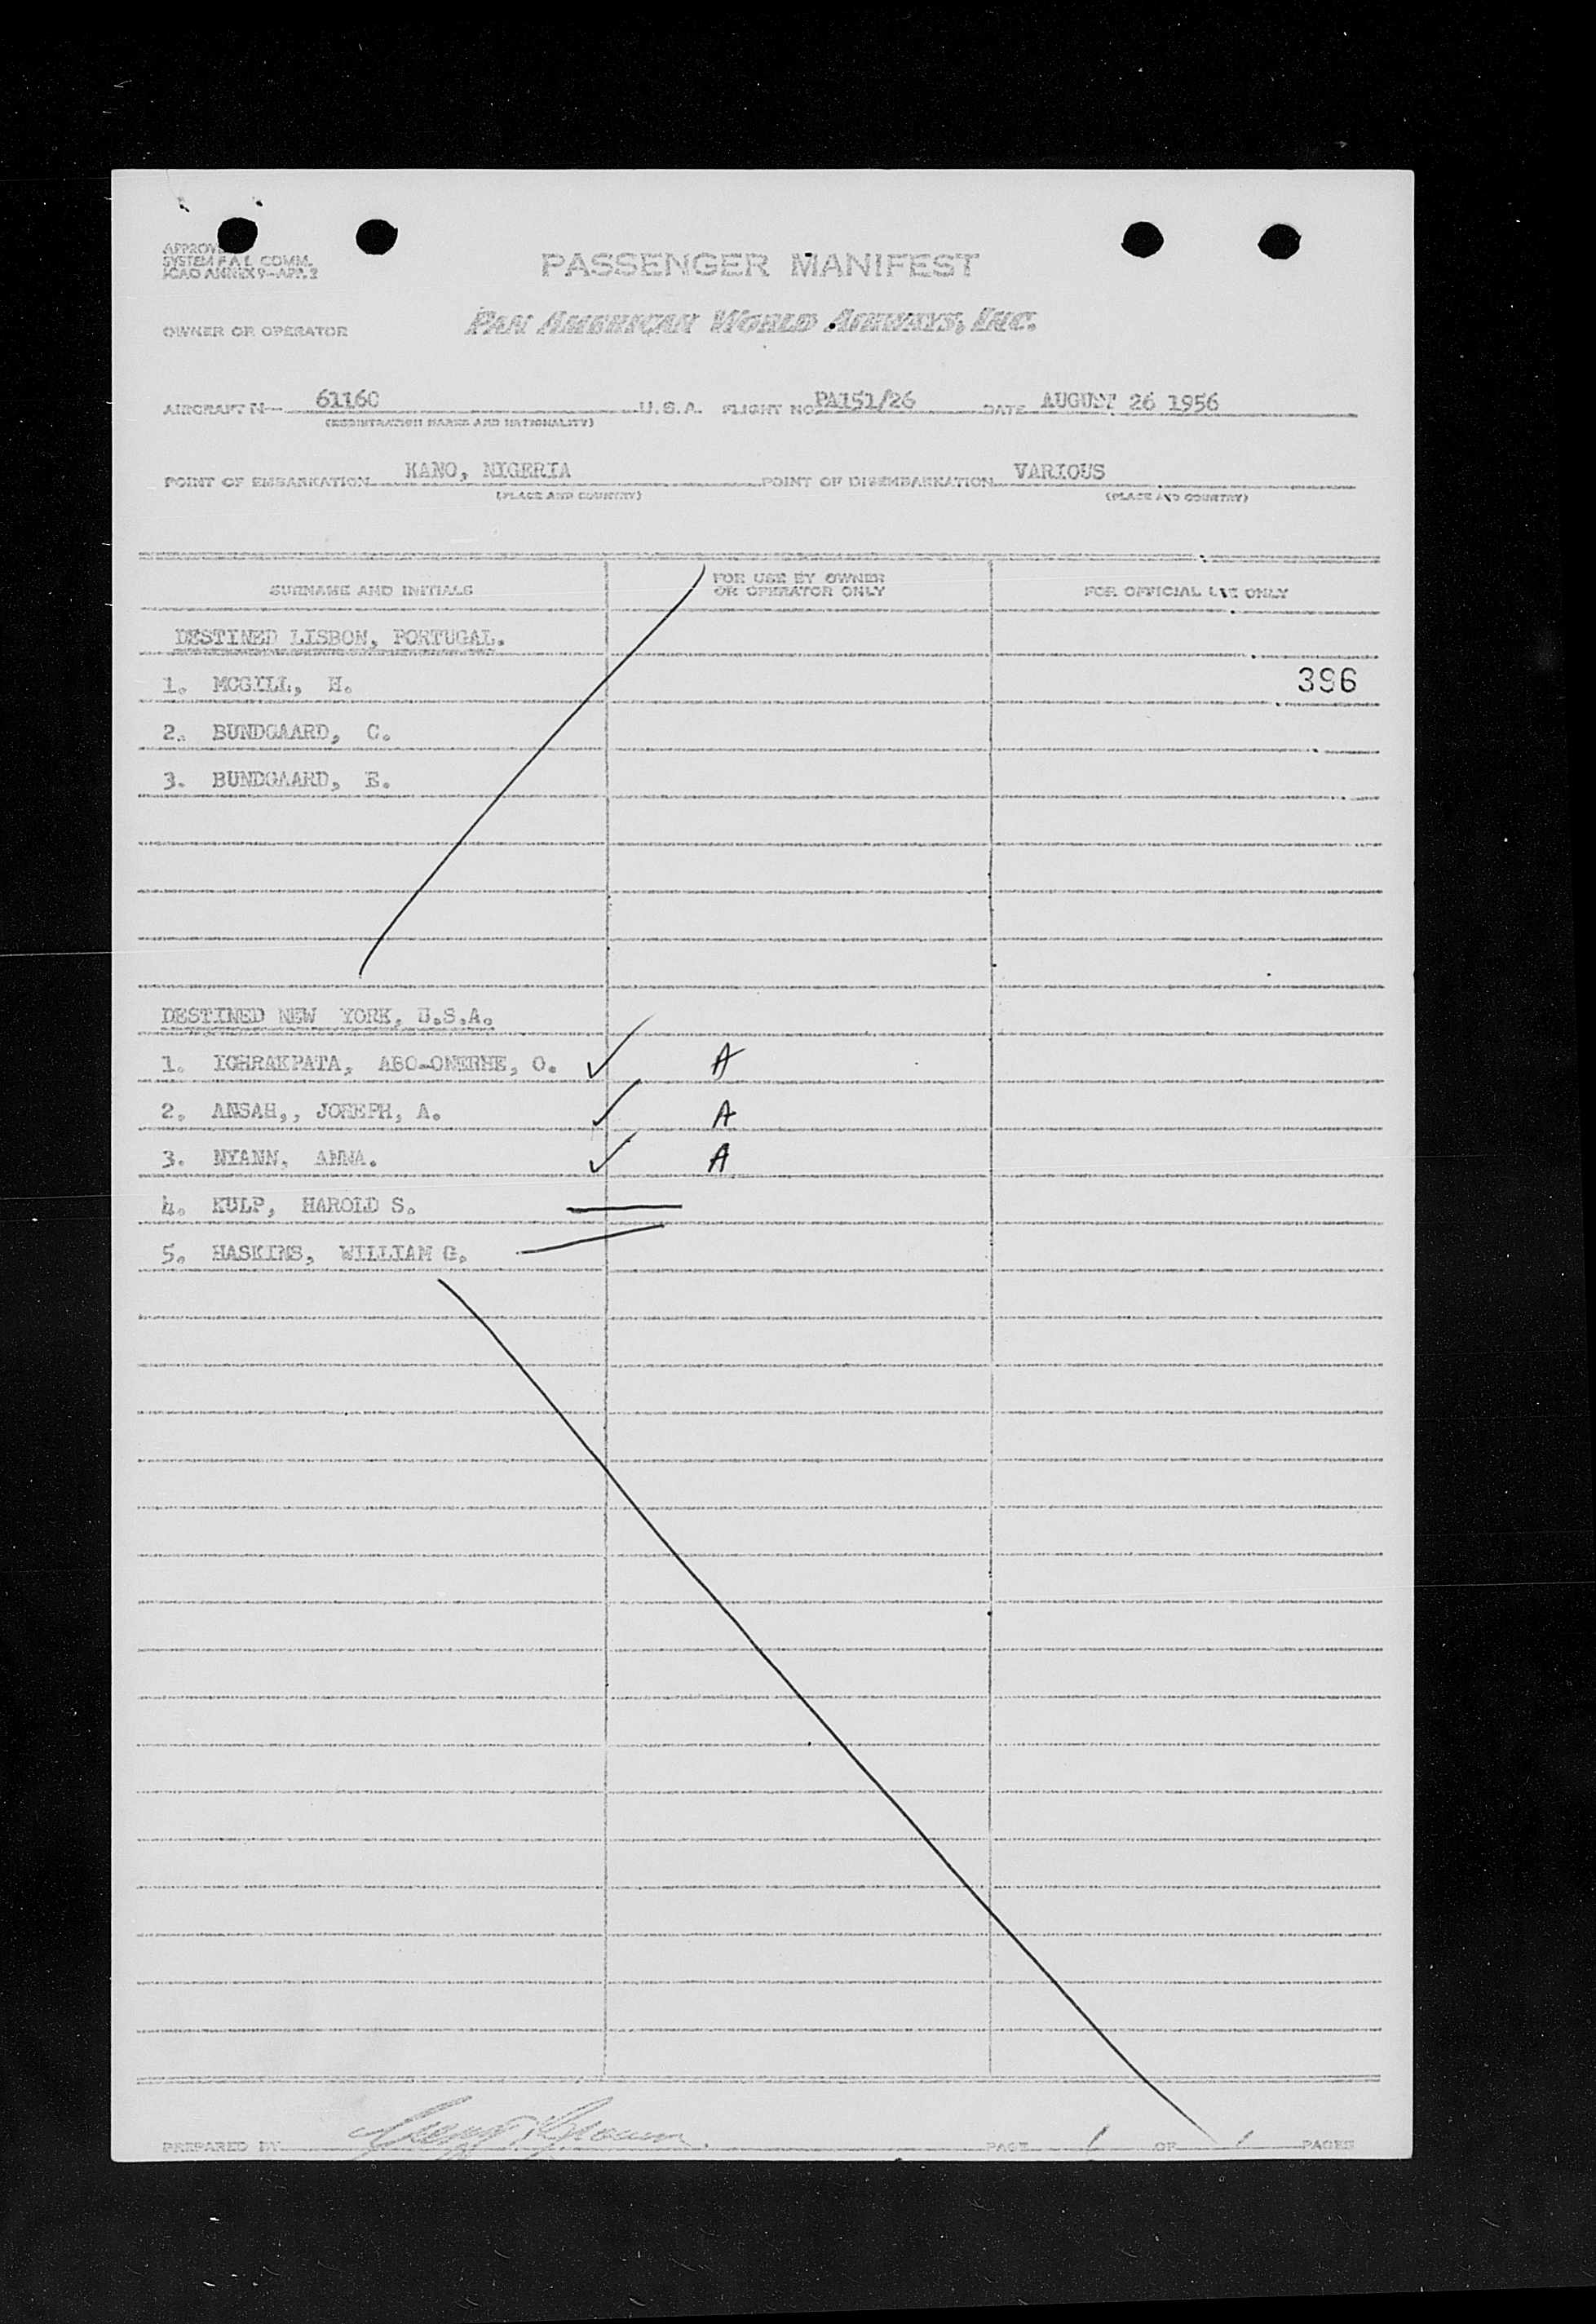 APPROVED
SYSTEM F.A.L. COMM.
ICAO ANNEX 9-APP. 2
PASSENGER MANIFEST
OWNER OR OPERATOR PAN AMERICAN WORLD AIRWAYS, INC.
AIRCRAFT N- 61160 U.S.A. FLIGHT NO. PA151/26 DATE AUGUST 26 1956
(REGISTRATION MARKS AND NATIONALITY)
POINT OF EMBARKATION KANO, NIGERIA POINT OF DISEMBARKATION VARIOUS
(PLACE AND COUNTRY) (PLACE AND COUNTRY)
SURNAME AND INITIALS FOR USE BY OWNER OR OPERATOR ONLY FOR OFFICIAL USE ONLY
DESTINED LISBON, PORTUGAL.
1. MCGILL, H. 396
2. BUNDGAARD, C.
3. BUNDGAARD, E.
DESTINED NEW YORK, U.S.A.
1. IGHRAKPATA, ABO-ONERHE, O. ✓ A
2. ANSAH,, JOSEPH, A. ✓ A
3. NYANN, ANNA. ✓ A
4. KULP, HAROLD S.
5. HASKINS, WILLIAM G.
PREPARED BY PAGE 1 OF 1 PAGES